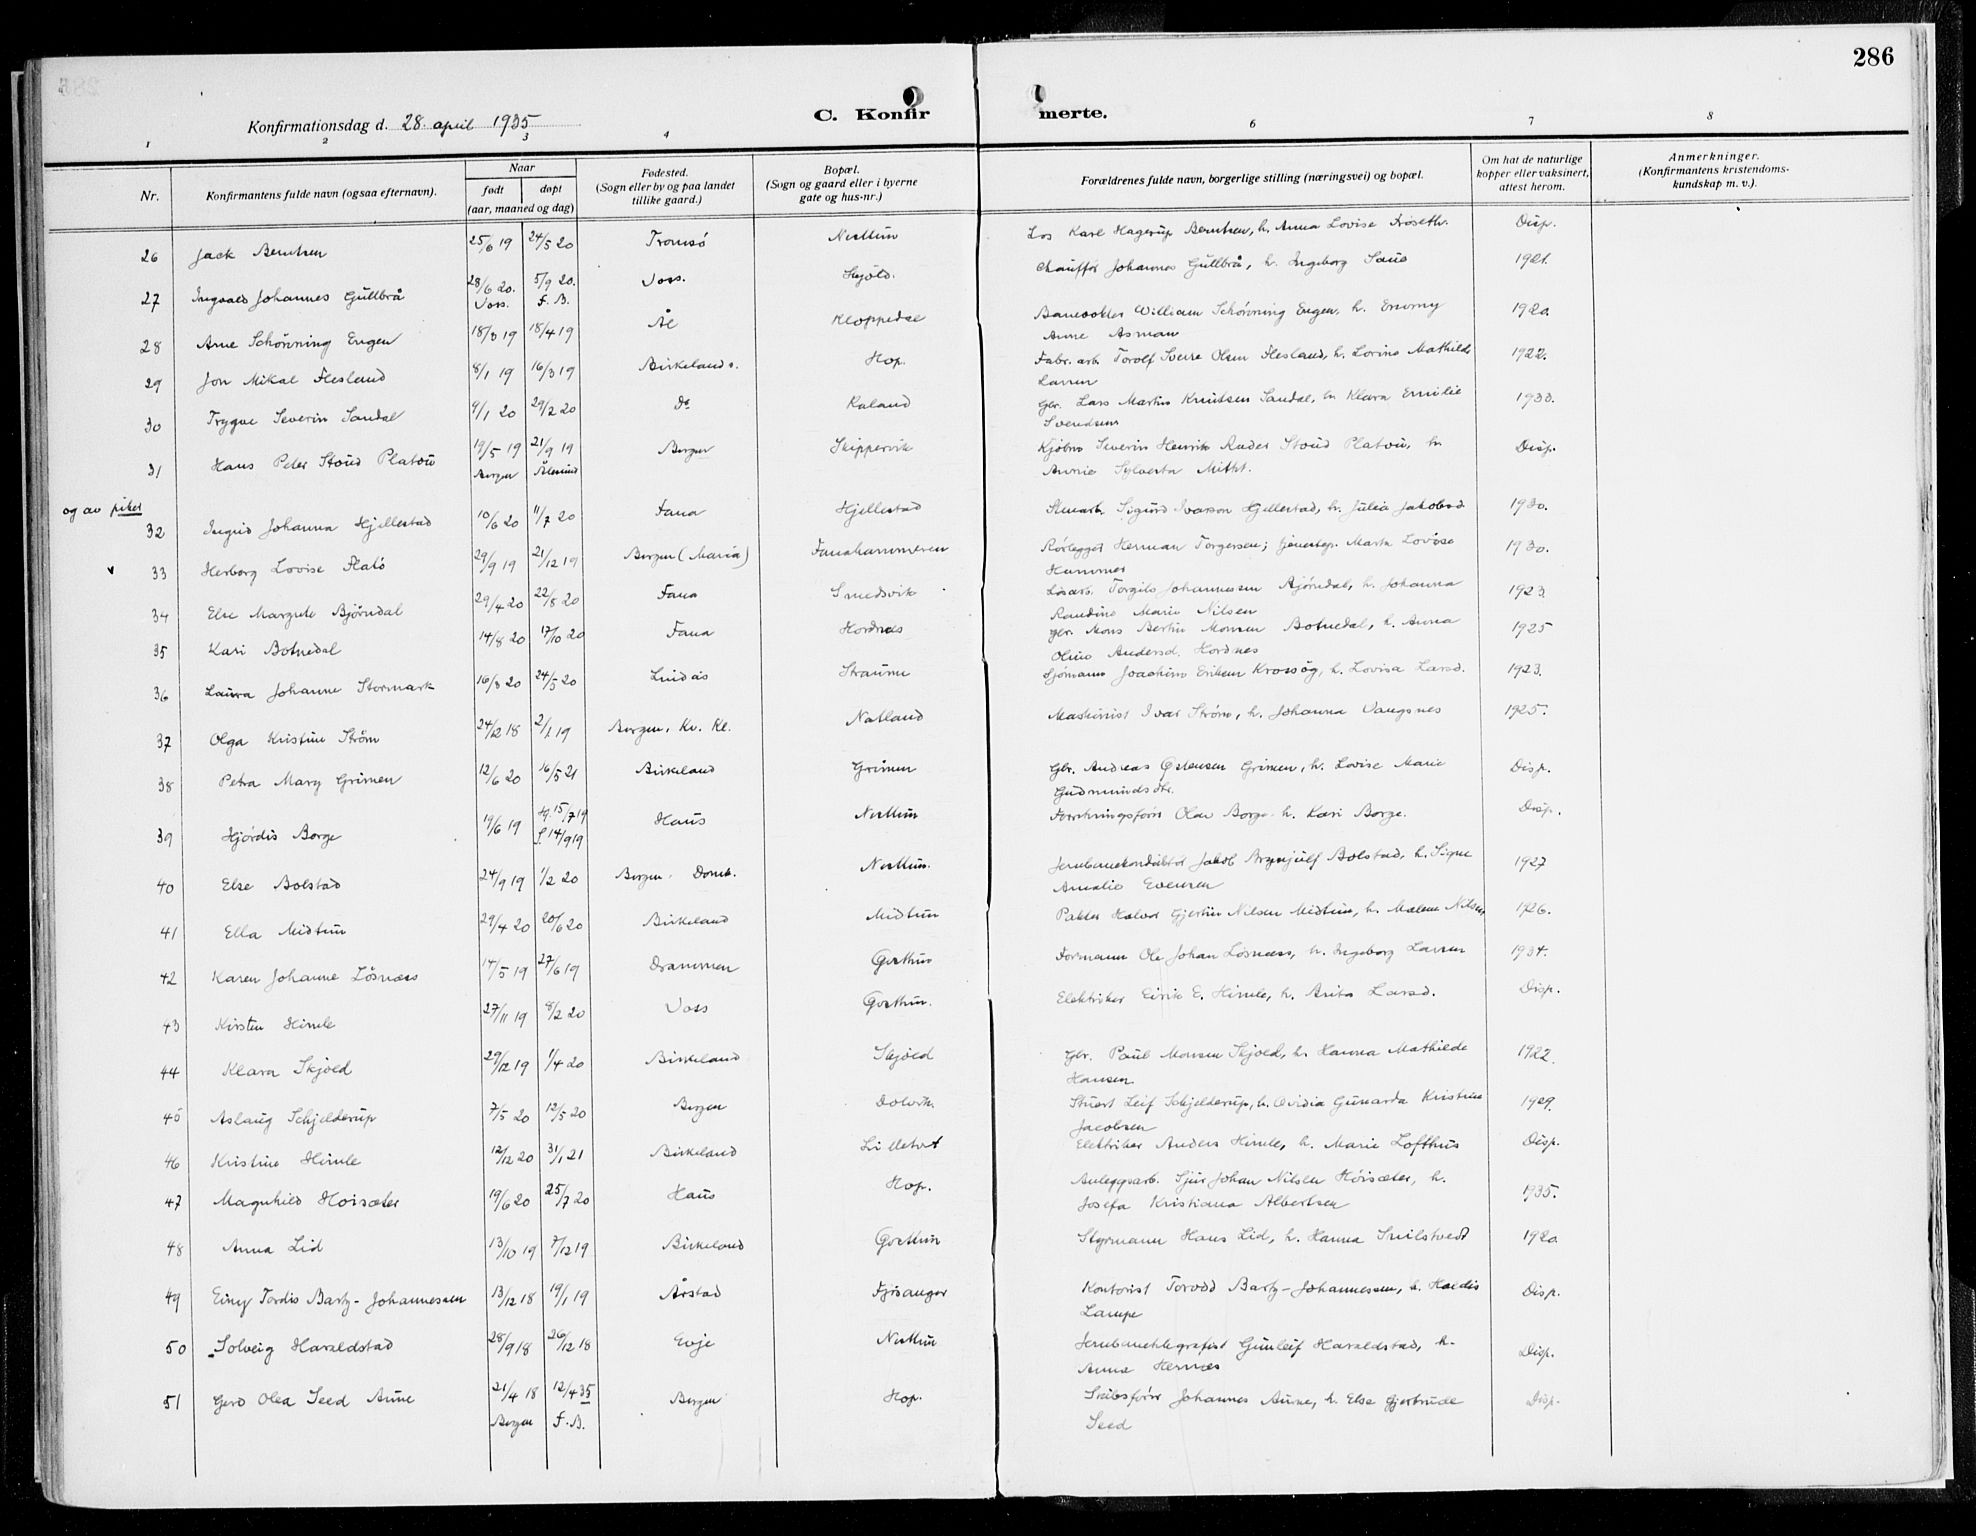 286
Konfirmationsdag d. 28. april 1935
C. Konfirmerte.
1 2 3 4 6 7 8
Nr. Konfirmantens fulde navn (ogsaa efternavn). Naar født døpt (aar, maaned og dag) Fødested. (Sogn eller by og paa landet tillike gaard.) Bopæl. (Sogn og gaard eller i byerne gate og hus-nr.) Forældrenes fulde navn, borgerlige stilling (næringsvei) og bopæl. Om hat de naturlige kopper eller vaksinert, attest herom. Anmerkninger. (Konfirmantens kristendomskundskap m. v.).
26 Jack Berntsen 25/6 19 24/5 20 Tromsö Nesttun Los Karl Hagerup Berntsen, h. Anna Lovise Trøseth. Disp.
27 Ingvald Johannes Gullbrå 28/6 20. Voss. 5/9 20. F. B. Voss. Skjold. Chauffør Johannes Gullbrå, h. Ingeborg Saue 1921.
28 Arne Schönning Engen 18/3 19 18/4 19 Ål Kloppedal Banevokter William Schönning Engen, h.
Anne Asman 1920.
29 Jon Mikal Flesland 8/1 19 16/3 19 Birkelands. Hop. Fabr. arb. Torolf Sverre Olsen Flesland, h. Lovine Mathilde
Larsen 1922.
30 Trygve Severin Sandal 9/1 20 29/2 20 Do Kaland Gbr. Lars Martin Knutsen Sandal, h. Klara Emilie
Svendsen 1933.
31 Hans Peter Stoud Platou 19/5 19 Bergen 21/9 19 Ålesund Bergen Skippervik Kjøbm. Severin Henrik Ander Stoud Platou, h.
Annie Sylvesta Disp.
og av piker
32 Ingrid Johanna Hjellestad 10/6 20 11/7 20 Fana Hjellestad Stenarb. Sigurd Ivarson Hjellestad, h. Julia Jakobsd. 1930.
v 33 Herborg Lovise Flatö 29/9 19 21/12 19 Bergen (Maria) Fanahammeren Rörlegger Herman Torgersen; tjenestep. Marta Lovise
Hammer 1930.
34 Else Margrete Bjørndal 29/4 20 22/8 20 Fana Smedsvik Løsarb. Torgils Johannessen Bjørndal, h. Johanna
Randine Marie Nilsen 1923.
35 Kari Botnedal 14/8 20 17/10 20 Fana Hordnes gbr. Mons Bertin Monsen Botnedal, h. Anna
Oline Andersd. Hordnes 1925
36 Laura Johanne Stormark 16/3 20 24/5 20 Lindås Straume Sjömann Joachim Eriksen Krossöy, h. Lovisa Larsd. 1923.
37 Olga Kristine Ström 24/12 18 2/1 19 Bergen, Kv. Kl. Natland Maskinist Ivar Ström, h. Johanna Vangsnes 1925.
38 Petra Mary Grimen 12/6 20 16/5 21 Birkeland Grimen Gbr. Andreas Östensen Grimen, h. Lovise Marie
Gudmundsdtr. Disp.
39 Hjördis Borge 19/6 19 Hj. 15/7 19 f. 14/9 19 Haus Nesttun Forretningsfører Olav Borge h. Kari Borge. Disp.
40 Else Bolstad 24/9 19 1/2 20 Bergen, Domk. Nesttun. Jernbanekonduktör Jakob Brynjulf Bolstad, h. Signe
Amalie Evensen 1927
41 Ella Midtun 29/4 20 20/6 20 Birkeland Midtun Pakker Halvor Gjertin Nilsen Midtun, h. Malene Nilsen 1926.
42 Karen Johanne Lösnæss 14/5 19 27/6 19 Drammen Gjerthus Formann Ole Johan Lösnæss, h. Ingeborg Larsen 1934.
43 Kirsten Himle 27/11 19 8/2 20 Voss Elektriker Eirik E. Himle, h. Brita Larsd. Disp.
44 Klara Skjold 29/12 19 1/4 20 Birkeland Skjold Gbr. Paul Monsen Skjold, h. Hanna Mathilde
Hansen 1922.
45 Aslaug Schjelderup 7/5 20 12/5 20 Bergen Dolvik. Stuert Leif Schjelderup, h. Ovidia Gunarda Kristine
Jacobsen 1929.
46 Kristine Himle 12/12 20 31/1 21 Birkeland Lilletvet Elektriker Anders Himle, h. Marie Lofthus Disp.
47 Magnhild Hoisæter 19/6 20 25/7 20 Haus Hop. Anleggsarb. Sjur Johan Nilsen Höisæter, h.
Josefa Kristiana Albertsen 1935.
48 Anna Lid 13/10 19 7/12 19 Birkeland Styrmann Hans Lid, h. Hanna Smilstvedt 1920.
49 Einy Tordis Bartz-Johannessen 13/12 18 19/1 19 Årstad Fjösanger Kontorist Torodd Bartz-Johannessen, h. Haldis
Lampe Disp.
50 Solveig Haraldstad 28/9 18 26/12 18 Evje Nesttun Jernbanetelegrafist Gunleif Haraldstad, h.
Anna Hernes Disp.
51 Gerd Olea Seed Aune 21/4 18 Bergen 12/4 35 F. B. Bergen Hop. Skibsfører Johannes Aune, h. Else Gjertrude
Seed Disp.